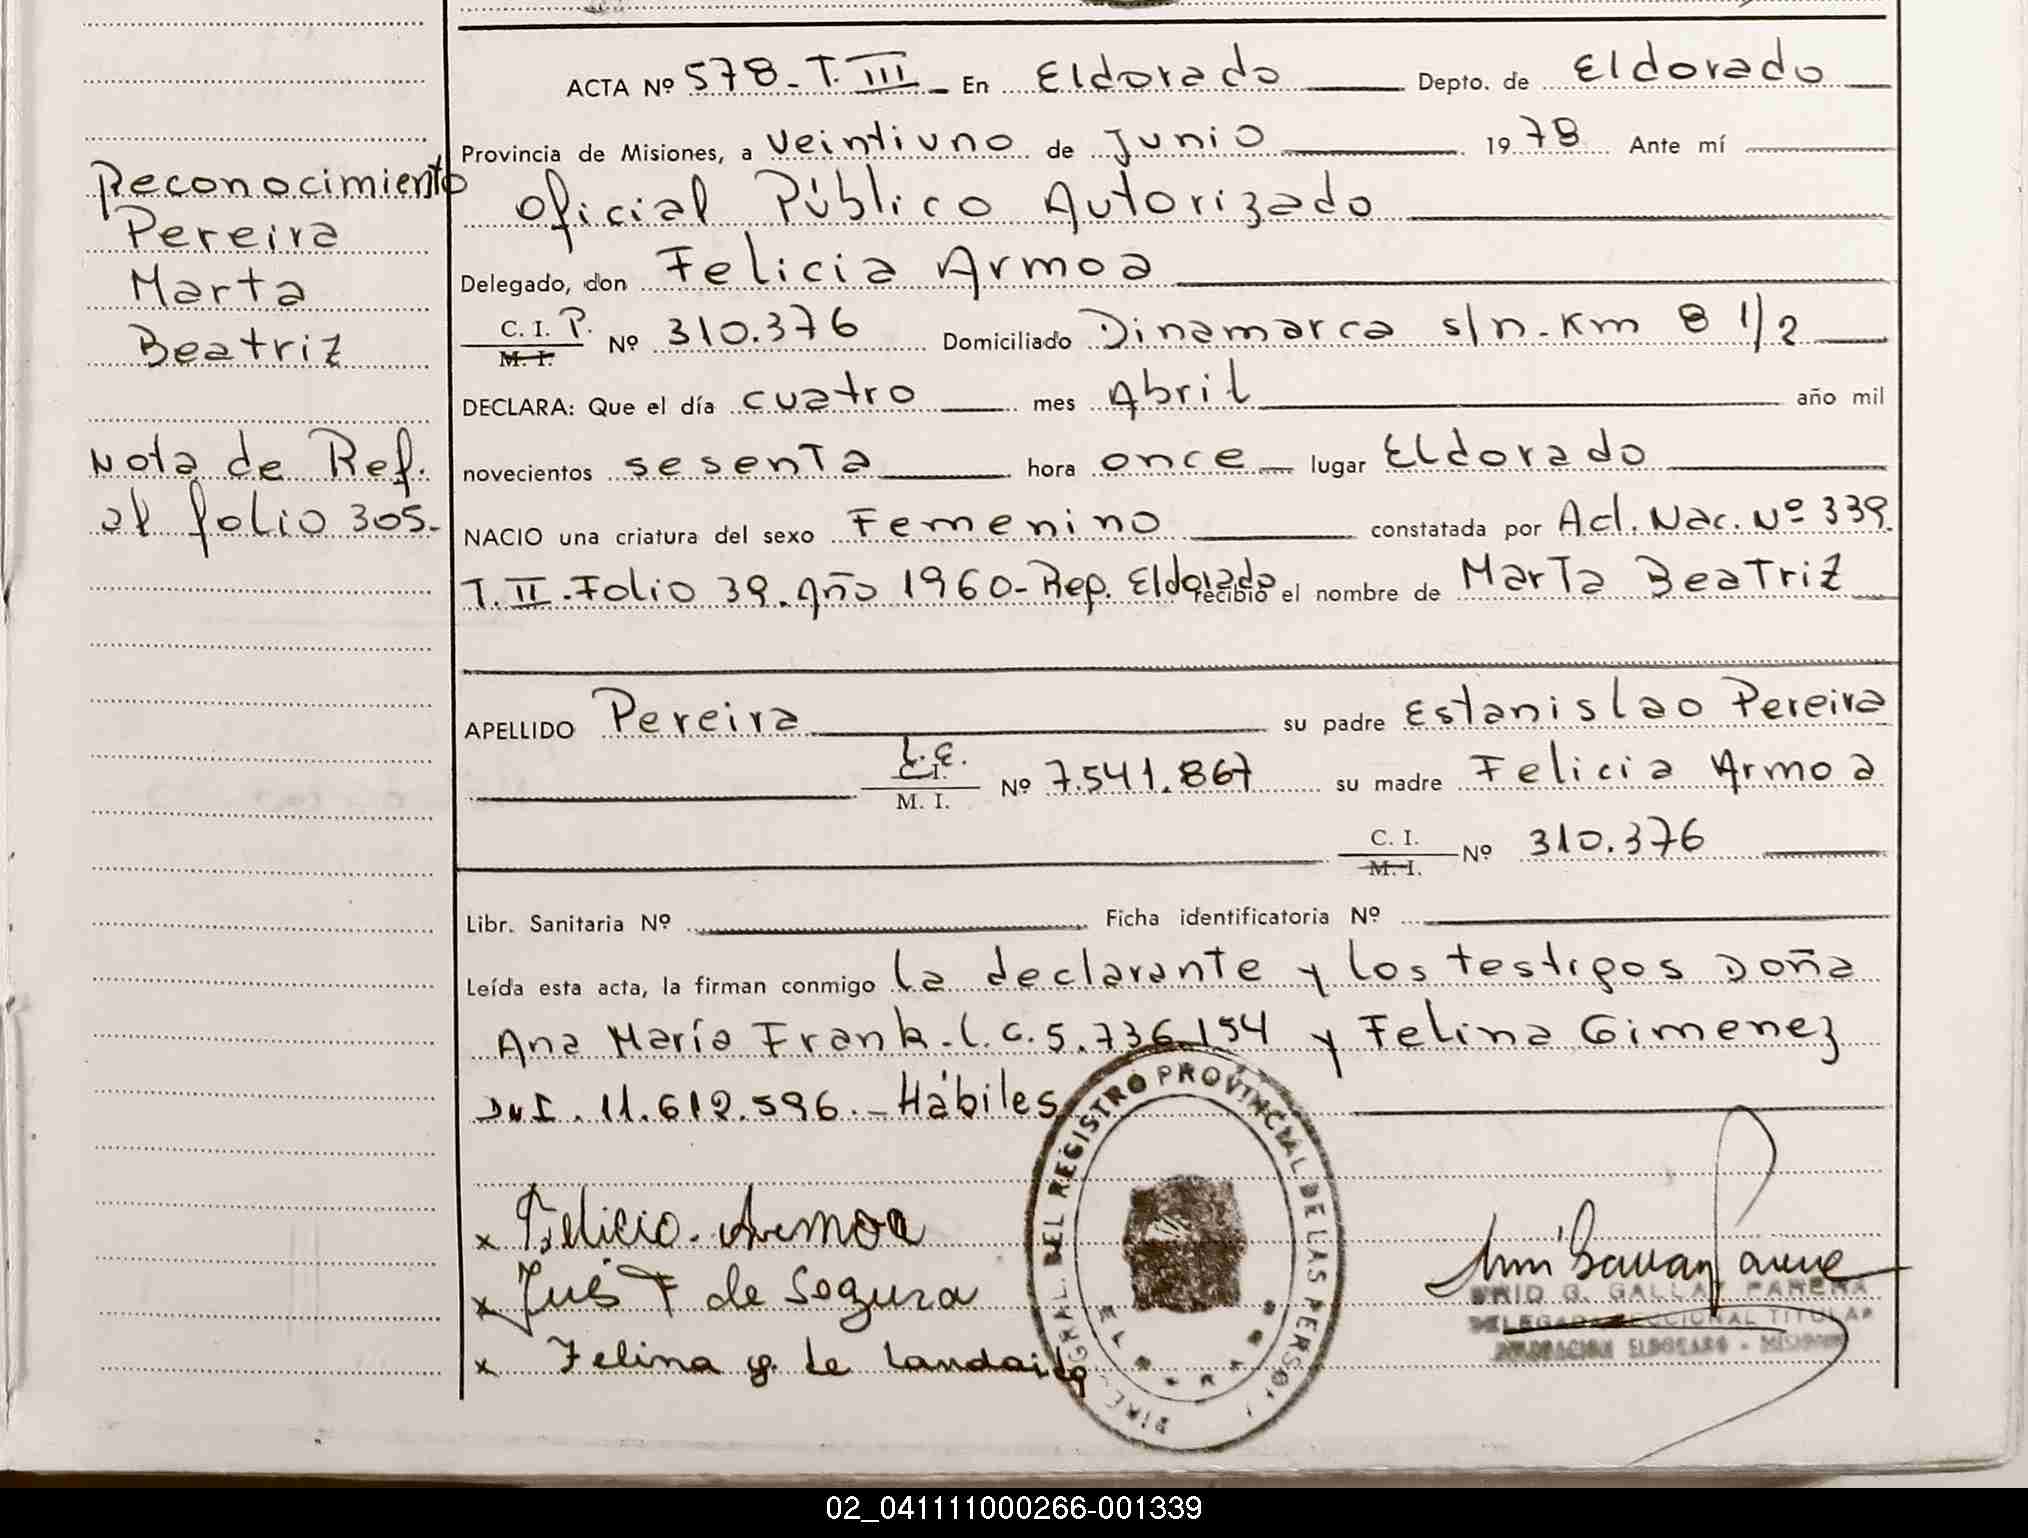 ACTA Nº 578-T.III En Eldorado Depto. de Eldorado
Provincia de Misiones, a veintiuno de Junio 1978 Ante mí
Oficial Público Autorizado
Delegado, don Felicia Armoa
C. I. P. M. I. Nº 310.376 Domiciliado Dinamarca s/n-Km 8 1/2
DECLARA: Que el día cuatro mes Abril año mil
novecientos sesenta hora once lugar Eldorado
NACIO una criatura del sexo Femenino constatada por Act. Nac. Nº 339.
T. II. Folio 39. Año 1960- Rep. Eldorado recibió el nombre de Marta Beatriz
APELLIDO Pereira su padre Estanislao Pereira
L.E. C. I. M. I. Nº 7.541.867 su madre Felicia Armoa
C. I. M. I. Nº 310.376
Libr. Sanitaria Nº Ficha identificatoria Nº
Leída esta acta, la firman conmigo la declarante y los testigos Doña
Ana María Frank. L.C. 5.736.154 y Felina Gimenez
DNI. 11.612.596.- Hábiles
Reconocimiento
Pereira
Marta
Beatriz
Nota de Ref.
al folio 305.-
x Felicia Armoa
x F de Segura
x Felina G. de
DEL REGISTRO PROVINCIAL DE LAS PERSO
G. PARERA
DELEGADA SECCIONAL TITULAR
ELDORADO - MISIONES
02_041111000266-001339